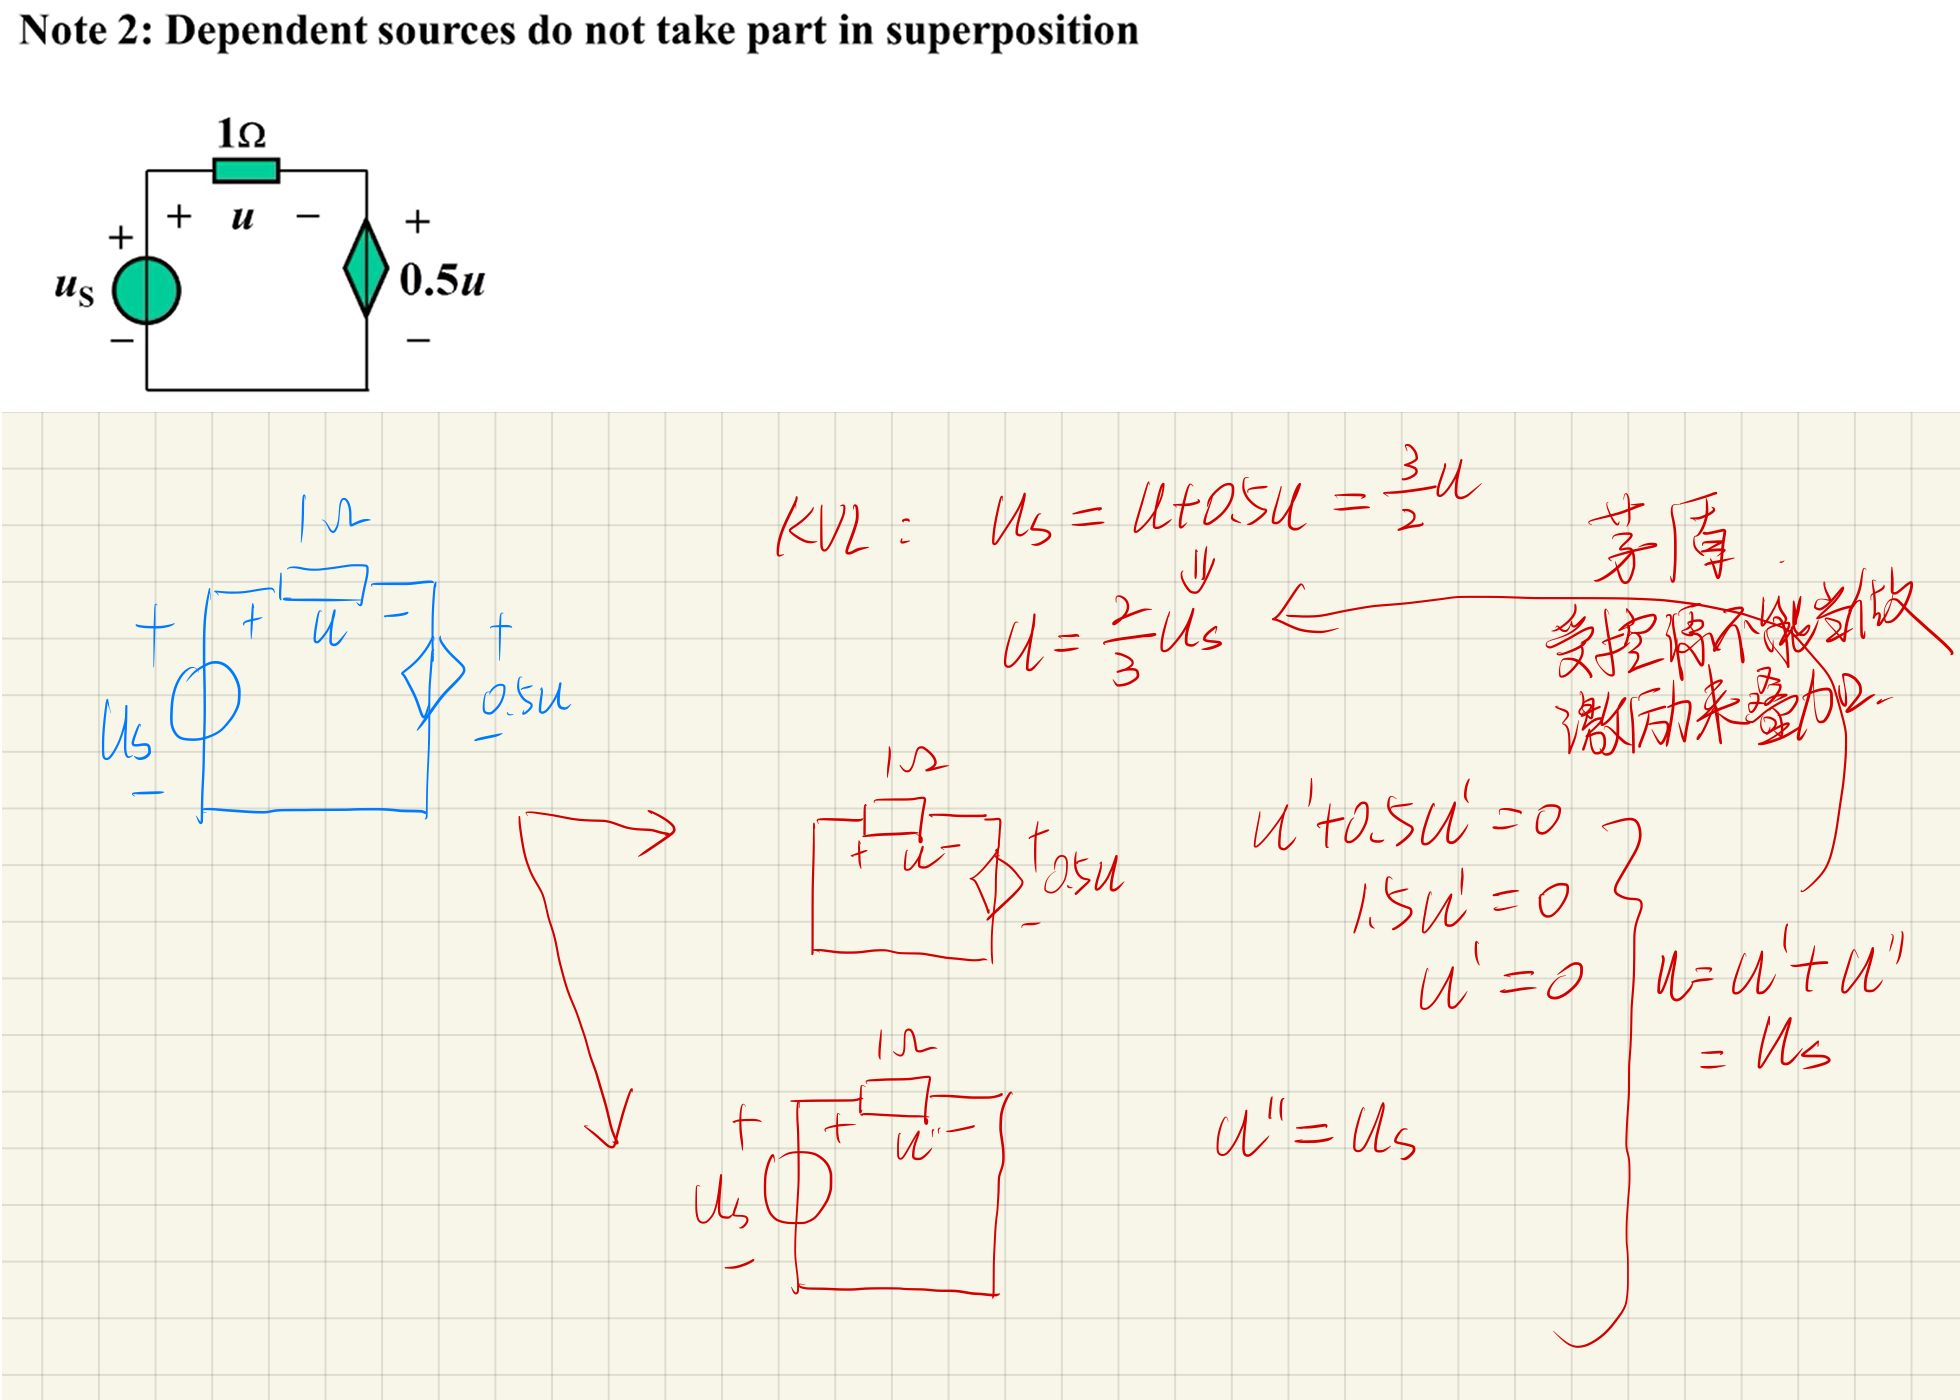 Note 2: Dependent sources do not take part in superposition
1Ω
+ u −
+
uS
−
+
0.5u
−
1Ω
+ u −
+
us
−
+
0.5u
−
KVL: us = u+0.5u = 3/2 u
⇓
u = 2/3 us
茅盾.
受控源不能当做
激励来叠加.
1Ω
+ u −
+
0.5u
−
u'+0.5u' = 0
1.5u' = 0
u' = 0
u = u' + u''
= us
1Ω
+ u'' −
+
us
−
u'' = us